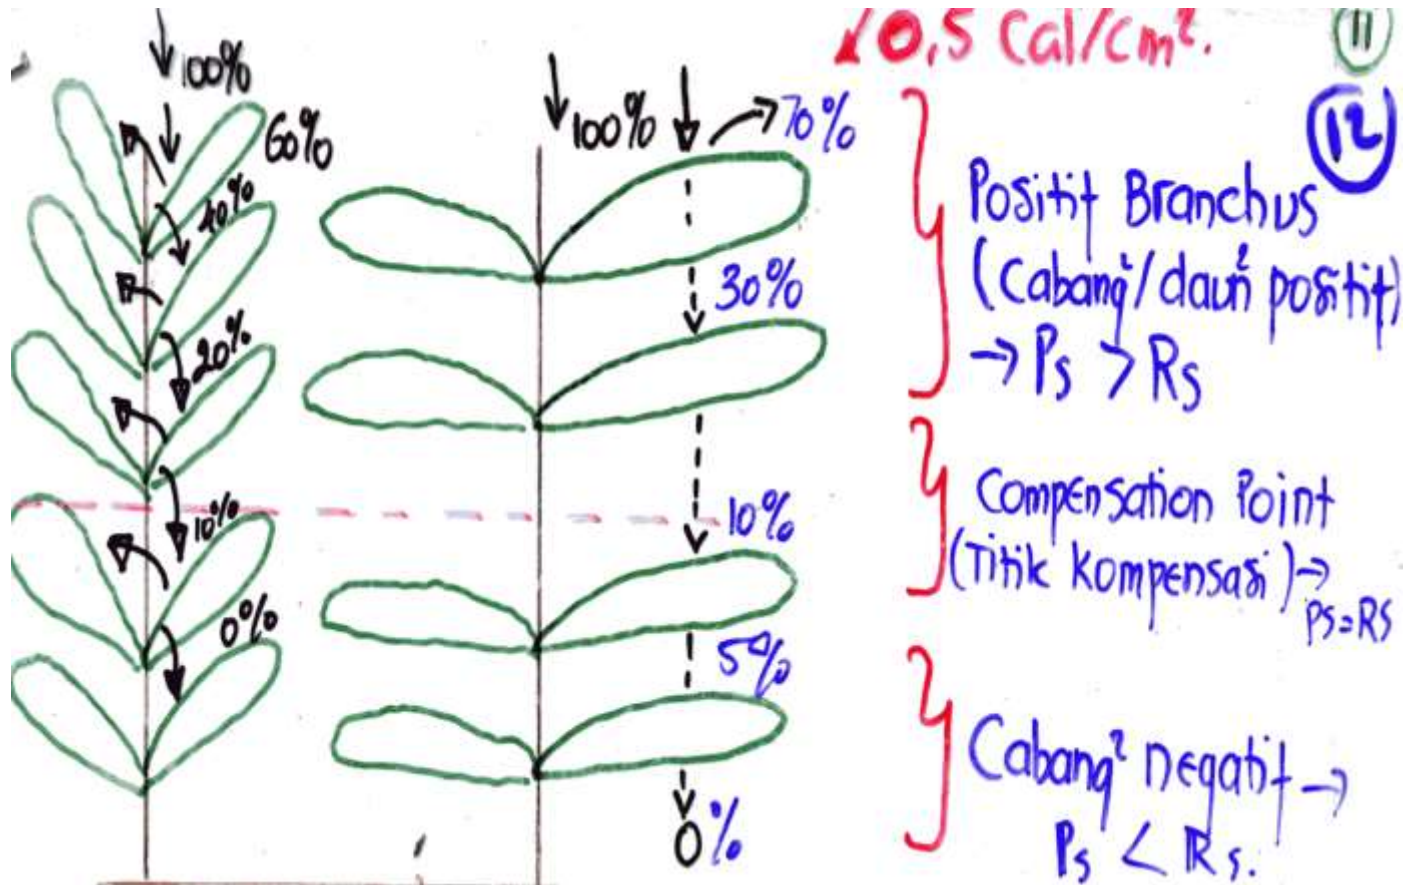 ↓0,5 Cal/cm².
11
12
↓100%
60%
40%
20%
10%
0%
↓100%
70%
30%
10%
5%
0%
Positif Branchus
(Cabang²/daun² positif)
→ Ps > Rs
Compensation Point
(Titik Kompensasi) →
Ps=Rs
Cabang² negatif →
Ps < Rs.